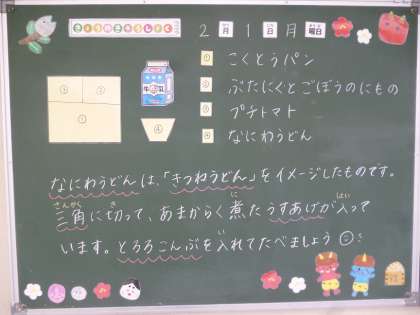 きょうのきゅうしょく
2月1日月曜日
① こくとうパン
② ぶたにくとごぼうのにもの
③ プチトマト
④ なにわうどん
牛乳
③ ②
①
④
なにわうどんは、「きつねうどん」をイメージしたものです。
三角に切って、あまからく煮たうすあげが入って
います。とろろこんぶを入れてたべましょう